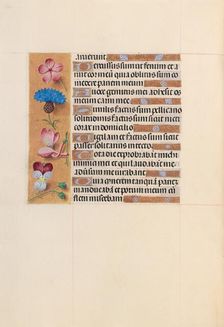 runt.
Percussus sum ut fenum et a
ruit cor meum quia oblitus sum co
medere panem meum
voce gemitus mei adhesit os
meum carni mee
Similis factus sum pellicano
solitudinis factus sum sicut nicti
corax in domicilio
Vigilavi et factus sum sicut
passer solitarius in tecto
Tota die exprobrabāt michi
inimici mei et qui laudabāt me ad
versum me iurabāt
Quia cinerem tanquā panez
manducabam et potum meum cū
fletu miscebam